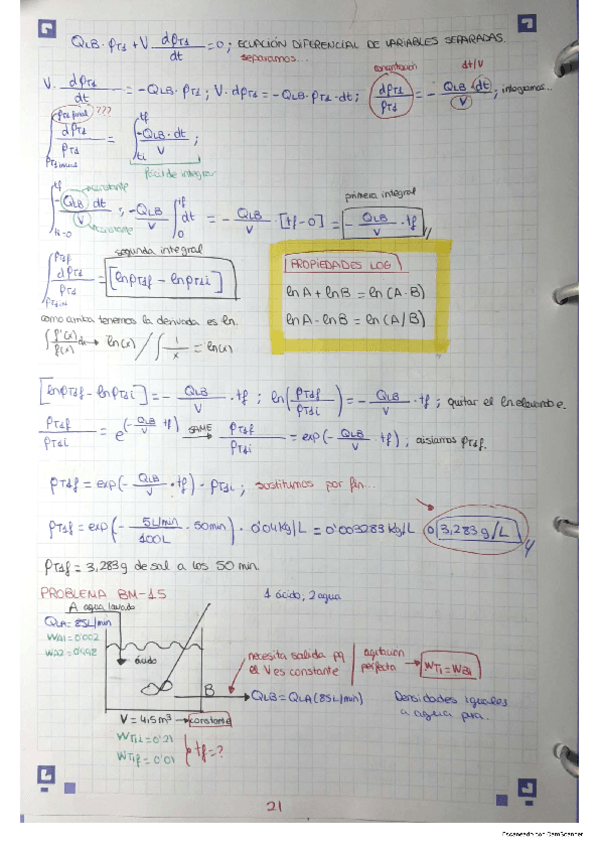 QLB · ρTs + V dρTs/dt = 0 ; ECUACIÓN DIFERENCIAL DE VARIABLES SEPARADAS.
separamos...
concentración dt/V
V · dρTs/dt = -QLB · ρTs ; V · dρTs = -QLB · ρTs · dt ; dρTs/ρTs = - QLB · dt/V ; integramos...
???
∫ dρTs/ρTs = ∫ti^tf -QLB · dt/V ;
Fácil de integrar
constante
primera integral
∫ti=0^tf -QLB/V dt ; -QLB/V ∫0^tf dt = -QLB/V · [tf-0] = -QLB/V · tf
constante
segunda integral
∫ρTsi^ρTsf dρTs/ρTs = [lnρTsf - lnρTsi]
PROPIEDADES LOG
lnA + lnB = ln(A·B)
lnA - lnB = ln(A/B)
como arriba tenemos la derivada es ln.
∫ f'(x)/f(x) dx → ln(x) / ∫ 1/x = ln(x)
[lnρTsf - lnρTsi] = - QLB/V · tf ; ln(ρTsf/ρTsi) = - QLB/V · tf ; quitar el ln elevando e.
ρTsf/ρTsi = e^(-QLB/V · tf) SAME → ρTsf/ρTsi = exp(- QLB/V · tf) ; aislamos ρTsf.
ρTsf = exp(- QLB/V · tf) · ρTsi ; sustituimos por fin...
ρTsf = exp(- 5L/min/100L · 50min) · 0'04kg/L = 0'003283kg/L o 3,283g/L
ρTsf = 3,283g de sal a los 50 min.
PROBLEMA BM-15 1 ácido, 2 agua
A agua lavado
QLA = 85L/min
WA1 = 0'002
WA2 = 0'998
ácido
necesita salida pq el V es constante
agitación perfecta → WTi = WBi
B
QLB = QLA (85L/min)
Densidades iguales a agua pura.
V = 4,5m³ → constante
WT1i = 0'21
WT1f = 0'01
tf = ?
21
Escaneado con CamScanner